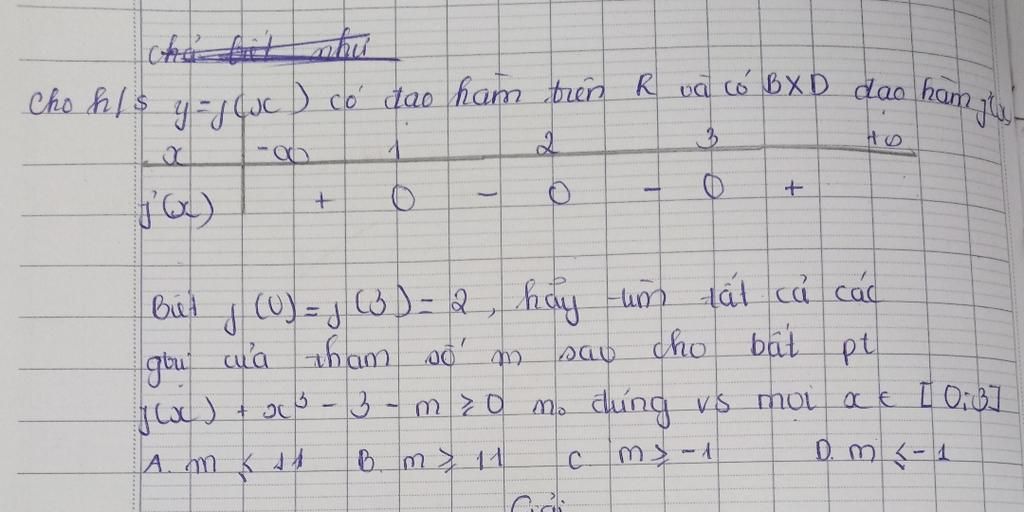 Cho h/s y=f(x) có đạo hàm trên R và có BXD đạo hàm f'(x)
x -∞ 1 2 3 +∞
f'(x) + 0 - 0 - 0 +
Biết f(0)=f(3)=2, hãy tìm tất cả các
gtrị của tham số m sao cho bất pt
f(x) + x³ - 3 - m ≥ 0 no đúng vs mọi x ∈ [0;3]
A. m ≤ 11 B. m ≥ 11 C. m ≥ -1 D. m ≤ -1